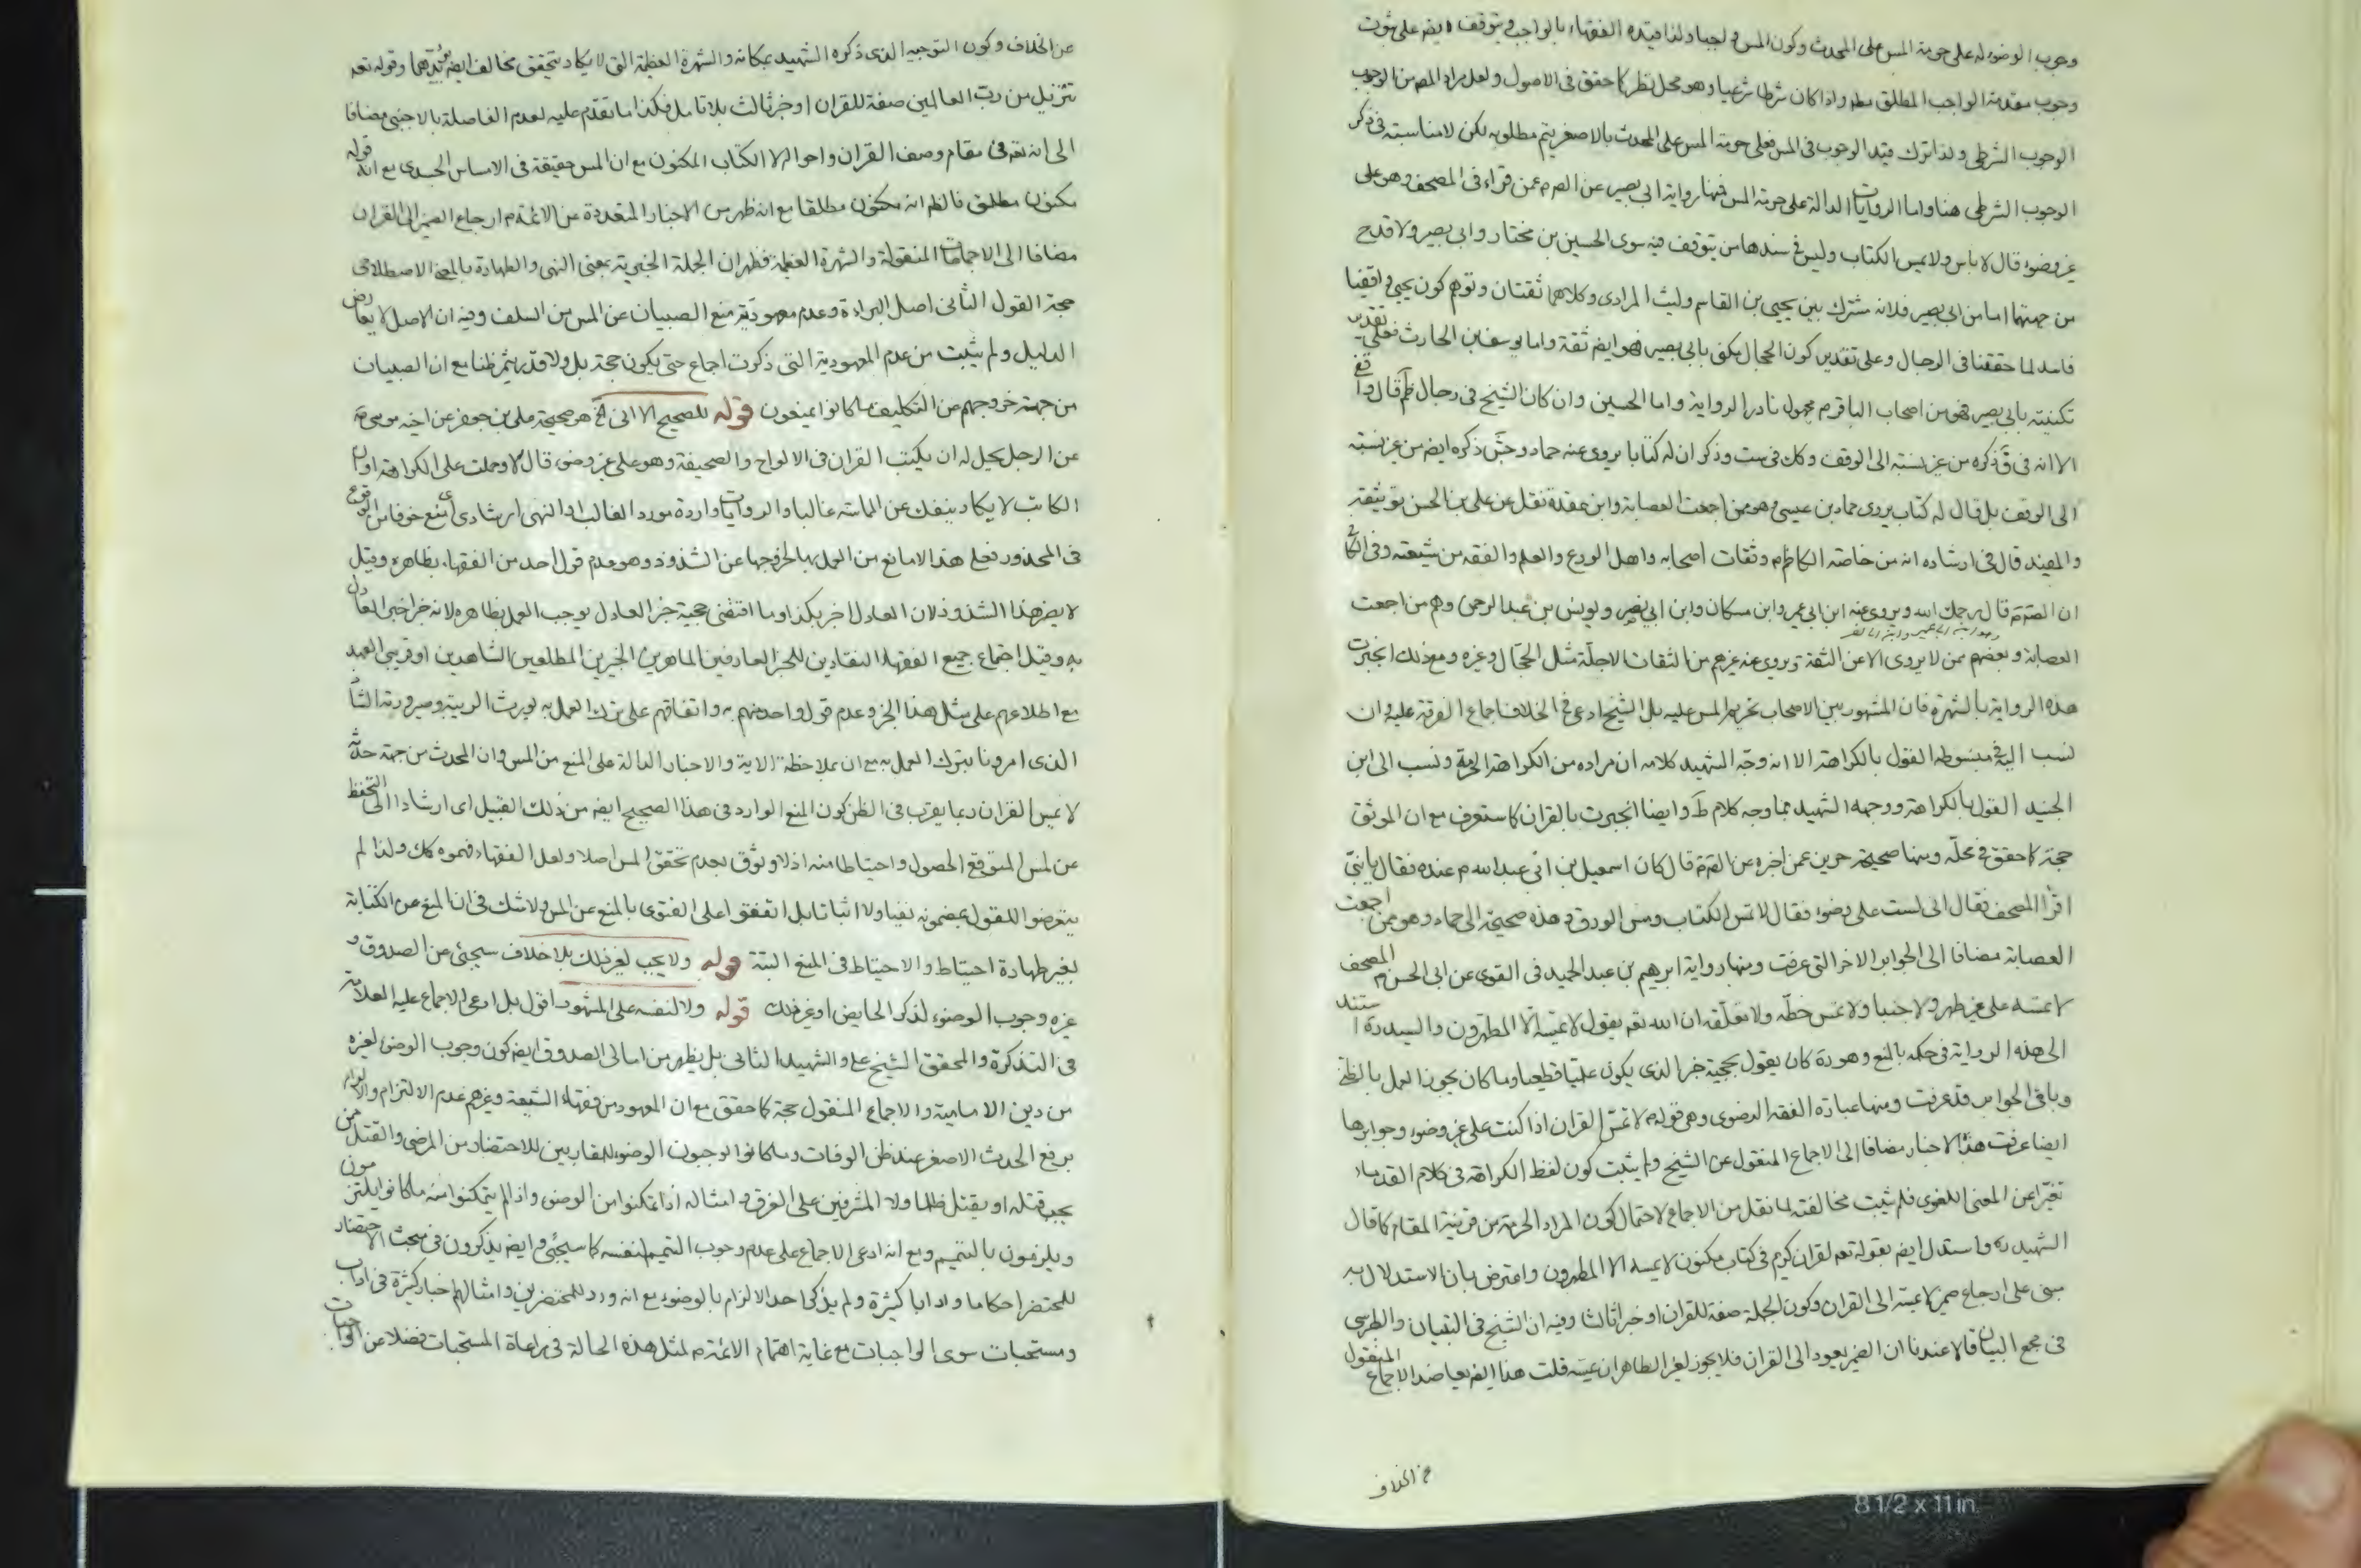 وجوب الوضوء له على حرمة المس على المحدث وكون المس واجبا ولذا قيده الفقهاء بالواجب ويتوقف ايضا على ثبوت
وجوب مقدمة الواجب المطلق مطلقا واذا كان شرطا شرعيا وهو محل نظر كما حقق فى الاصول ولعل مراد المصـ من الوجوب
الوجوب الشرطى ولذا ترك قيد الوجوب فى المس فعلى حرمة المس على المحدث بالاصغر يتم مطلوبه لكن لا مناسبته فى ذكر
الوجوب الشرطى هنا واما الروايات الدالة على حرمة المس فمنها رواية ابى بصير عن الصـ م عمن قراء فى المصحف وهو على
غير وضوء قال لا باس ولا يمس الكتاب وليس فى سندها من يتوقف فيه سوى الحسين بن مختار وابى بصير ولا قدح
من جهتهما اما من ابى بصير فلانه مشترك بين يحيى بن القاسم وليث المرادى وكلاهما ثقتان وتوهم كون يحيى واقفيا
فاسد لما حققنا فى الرجال وعلى تقدير كون الحجال يكنى بابى بصير فهو ايضـ ثقة واما يوسف بن الحارث فعلى تقدير
تكنيته بابى بصير فهو من اصحاب الباقر م مجهول نادر الرواية واما الحسين وان كان الشيخ فى رجال ظم قال واقفى
الا انه فى ق ذكره من غير نسبته الى الوقف وكك فى ست وذكر ان له كتابا يروى عنه حماد وجش ذكره ايضـ من غير نسبته
الى الوقف بل قال له كتاب يروى حماد بن عيسى وهو ممن اجمعت العصابة وابن عقدة نقل عن على بن الحسن توثيقه
والمفيد قال فى ارشاده انه من خاصته الكاظم م وثقات اصحابه واهل الورع والعلم والفقه من شيعته وفى الكافى
ان الصـ م قال رحمك الله ويروى عنه ابن ابى عمير وابن مسكان وابن ابى نصر ويونس بن عبد الرحمن وهم من اجمعت
العصابة وبعضهم ممن لا يروى الا عن الثقة ويروى عنه غيرهم من الثقات الاجلة مثل الحجال وغيره ومع ذلك انجبرت
هذه الرواية بالشهرة فان المشهور بين الاصحاب تحريم المس عليه بل الشيخ ادعى فى الخلاف اجماع الفرقة عليه وان
نسب اليه فى مبسوطه القول بالكراهة الا انه وجه الشهيد كلامه ان مراده من الكراهة الحرمة ونسب الى ابن
الجنيد القول بالكراهة ووجهه الشهيد بما وجه كلام ط وايضا انجبرت بالقران كما ستعرف مع ان الموثق
حجة كما حقق فى محله ومنها صحيحة حريز عمن اخبره عن الصـ م قال كان اسمعيل بن ابى عبد الله م عنده فقال يا بنى
اقرأ المصحف فقال انى لست على وضوء فقال لا تمس الكتاب ومس الورق وهذه صحيحة الى حماد وهو ممن اجمعت
العصابة مضافا الى الجوابر الاخر التى عرفت ومنها رواية ابرهيم بن عبد الحميد فى القوى عن ابى الحسن م المصحف
لا تمسه على غير طهر ولا جنبا ولا تمس خطه ولا تعلقه ان الله تعـ يقول لا يمسه الا المطهرون والسيد ره استند
الى هذه الرواية فى حكمه بالمنع وهو ره كان يقول بحجية خبر الذى يكون علميا قطعيا وما كان يجوز العمل بالظن
وباقى الجوابر قد عرفت ومنها عبارة الفقه الرضوى وهى قوله م لا تمس القران اذا كنت على غير وضوء وجوابرها
ايضا عرفت هذه الاخبار مضافا الى الاجماع المنقول عن الشيخ ولم يثبت كون لفظ الكراهة فى كلام القدماء
تغير عن المعنى اللغوى فلم يثبت مخالفته لما نقل من الاجماع لاحتمال كون المراد الحرمة من قرينة المقام كما قال
الشهيد ره واستدل ايضـ بقوله تعـ لقران كريم فى كتاب مكنون لا يمسه الا المطهرون واعترض بان الاستدلال به
مبنى على ارجاع ضمير لا يمسه الى القران وكون الجملة صفة للقران او خبرا ثالثا وفيه ان الشيخ فى التبيان والطبرسى
فى مجمع البيان قالا عندنا ان الضمير يعود الى القران فلا يجوز لغير الطاهر ان يمسه قلت هذا ايضـ يعاضد الاجماع المنقول
عن الخلاف
عن الخلاف وكون التوجيه الذى ذكره الشهيد بمكانه والشهرة العظيمة التى لا يكاد يتحقق مخالف ايضـ يؤيدهما وقوله تعـ
تنزيل من رب العالمين صفة للقران او خبر ثالث بلا تامل فكذا ما تقدم عليه لعدم الفاصلة بالاجنبى مضافا
الى انه تعـ فى مقام وصف القران واحواله لا الكتاب المكنون مع ان المس حقيقة فى الاساس الجسدى مع ان قوله
مكنون مطلق فالظـ انه مكنون مطلقا مع انه ظهر من الاخبار المتعددة عن الائمة م ارجاع الضمير الى القران
مضافا الى الاجماعات المنقولة والشهرة العظيمة فظهر ان الجملة الخبرية بمعنى النهى والطهارة بالمعنى الاصطلاحى
حجة القول الثانى اصل البراءة وعدم معهودية منع الصبيان عن المس من السلف وفيه ان الاصل لا يعارض
الدليل ولم يثبت من عدم المعهودية التى ذكرت اجماع حتى يكون حجة بل ولا قدر يثمر ظنا مع ان الصبيان
من جهة خروجهم من التكليف ما كانوا يمنعون قوله للصحيح الاتى الخ هو صحيحة على بن جعفر عن اخيه موسى م
عن الرجل يحل له ان يكتب القران فى الالواح والصحيفة وهو على غير وضوء قال لا وحملت على الكراهة او ان
الكاتب لا يكاد ينفك عن المماسة غالبا والروايات واردة مورد الغالب او النهى ارشادى اى منع خوفا من الوقوع
فى المحذور فعلى هذا لا مانع من العمل بها لخروجها عن الشذوذ وهو عدم قول احد من الفقهاء بظاهره وقيل
لا يضر هذا الشذوذ لان العادل اخبر بكذا وما اقتضى حجية خبر العادل يوجب العمل بظاهره لانه خبر اخبر العادل
به وقيل اجتماع جميع الفقهاء النقادين للخبر العارفين الماهرين الخبيرين المطلعين الشاهدين او قريبى العهد
مع اطلاعهم على مثل هذا الخبر وعدم قول واحد منهم به واتفاقهم على ترك العمل به يورث الريبة وصيرورته الشاذ
الذى امرونا بترك العمل به مع ان بملاحظة الاية والاخبار الدالة على المنع من المس وان المحدث من جهة حدثه
لا يمس القران ربما يقرب فى الظن كون المنع الوارد فى هذا الصحيح ايضـ من ذلك القبيل اى ارشادا الى التحفظ
عن لمس المتوقع الحصول واحتياطا منه اذ لا وثوق بعدم تحقق المس اصلا ولعل الفقهاء فهموه كك ولذا لم
يتعرضوا للقول بمضمونه نفيا ولا اثباتا بل اتفقوا على الفتوى بالمنع عن المس ولا شك فى ان المنع عن الكتابة
بغير طهارة احتياط والاحتياط فى المنع البتة قوله ولا يجب لغير ذلك بلا خلاف سيجئ عن الصدوق و
غيره وجوب الوضوء لذكر الحايض او غير ذلك قوله ولا لنفسه على المشهور اقول بل ادعى الاجماع عليه العلامة
فى التذكرة والمحقق الشيخ على والشهيد الثانى بل يظهر من امالى الصدوق ايضـ كون وجوب الوضوء لغيره
من دين الامامية والاجماع المنقول حجة كما حقق مع ان المعهود من فقهاء الشيعة وغيرهم عدم الالتزام والالزام
برفع الحدث الاصغر عند ظن الوفات وما كانوا يوجبون الوضوء للمقاربين للاحتضار من المرضى والقتل ممن
يجب قتله او يقتل ظلما ولا المشرفين على الغرق و امثاله اذا تمكنوا من الوضوء واذا لم يتمكنوا منه ما كانوا يلتزمون
ويلزمون بالتيمم ومع انه ادعى الاجماع على عدم وجوب التيمم لنفسه كما سيجئ وايضـ يذكرون فى مبحث الاحتضار
للمحتضر احكاما وادابا كثيرة ولم يذكر احد الالزام بالوضوء مع انه ورد للمحتضرين وامثالهم اخبار كثيرة فى اداب
ومستحبات سوى الواجبات مع غاية اهتمام الائمة م لمثل هذه الحالة فى مراعاة المستحبات فضلا عن الواجبات
8 1/2 x 11 in.